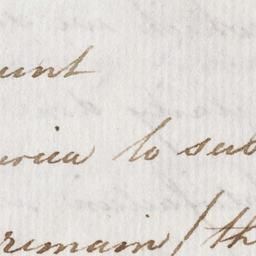 unt
erica to sub
remain / th